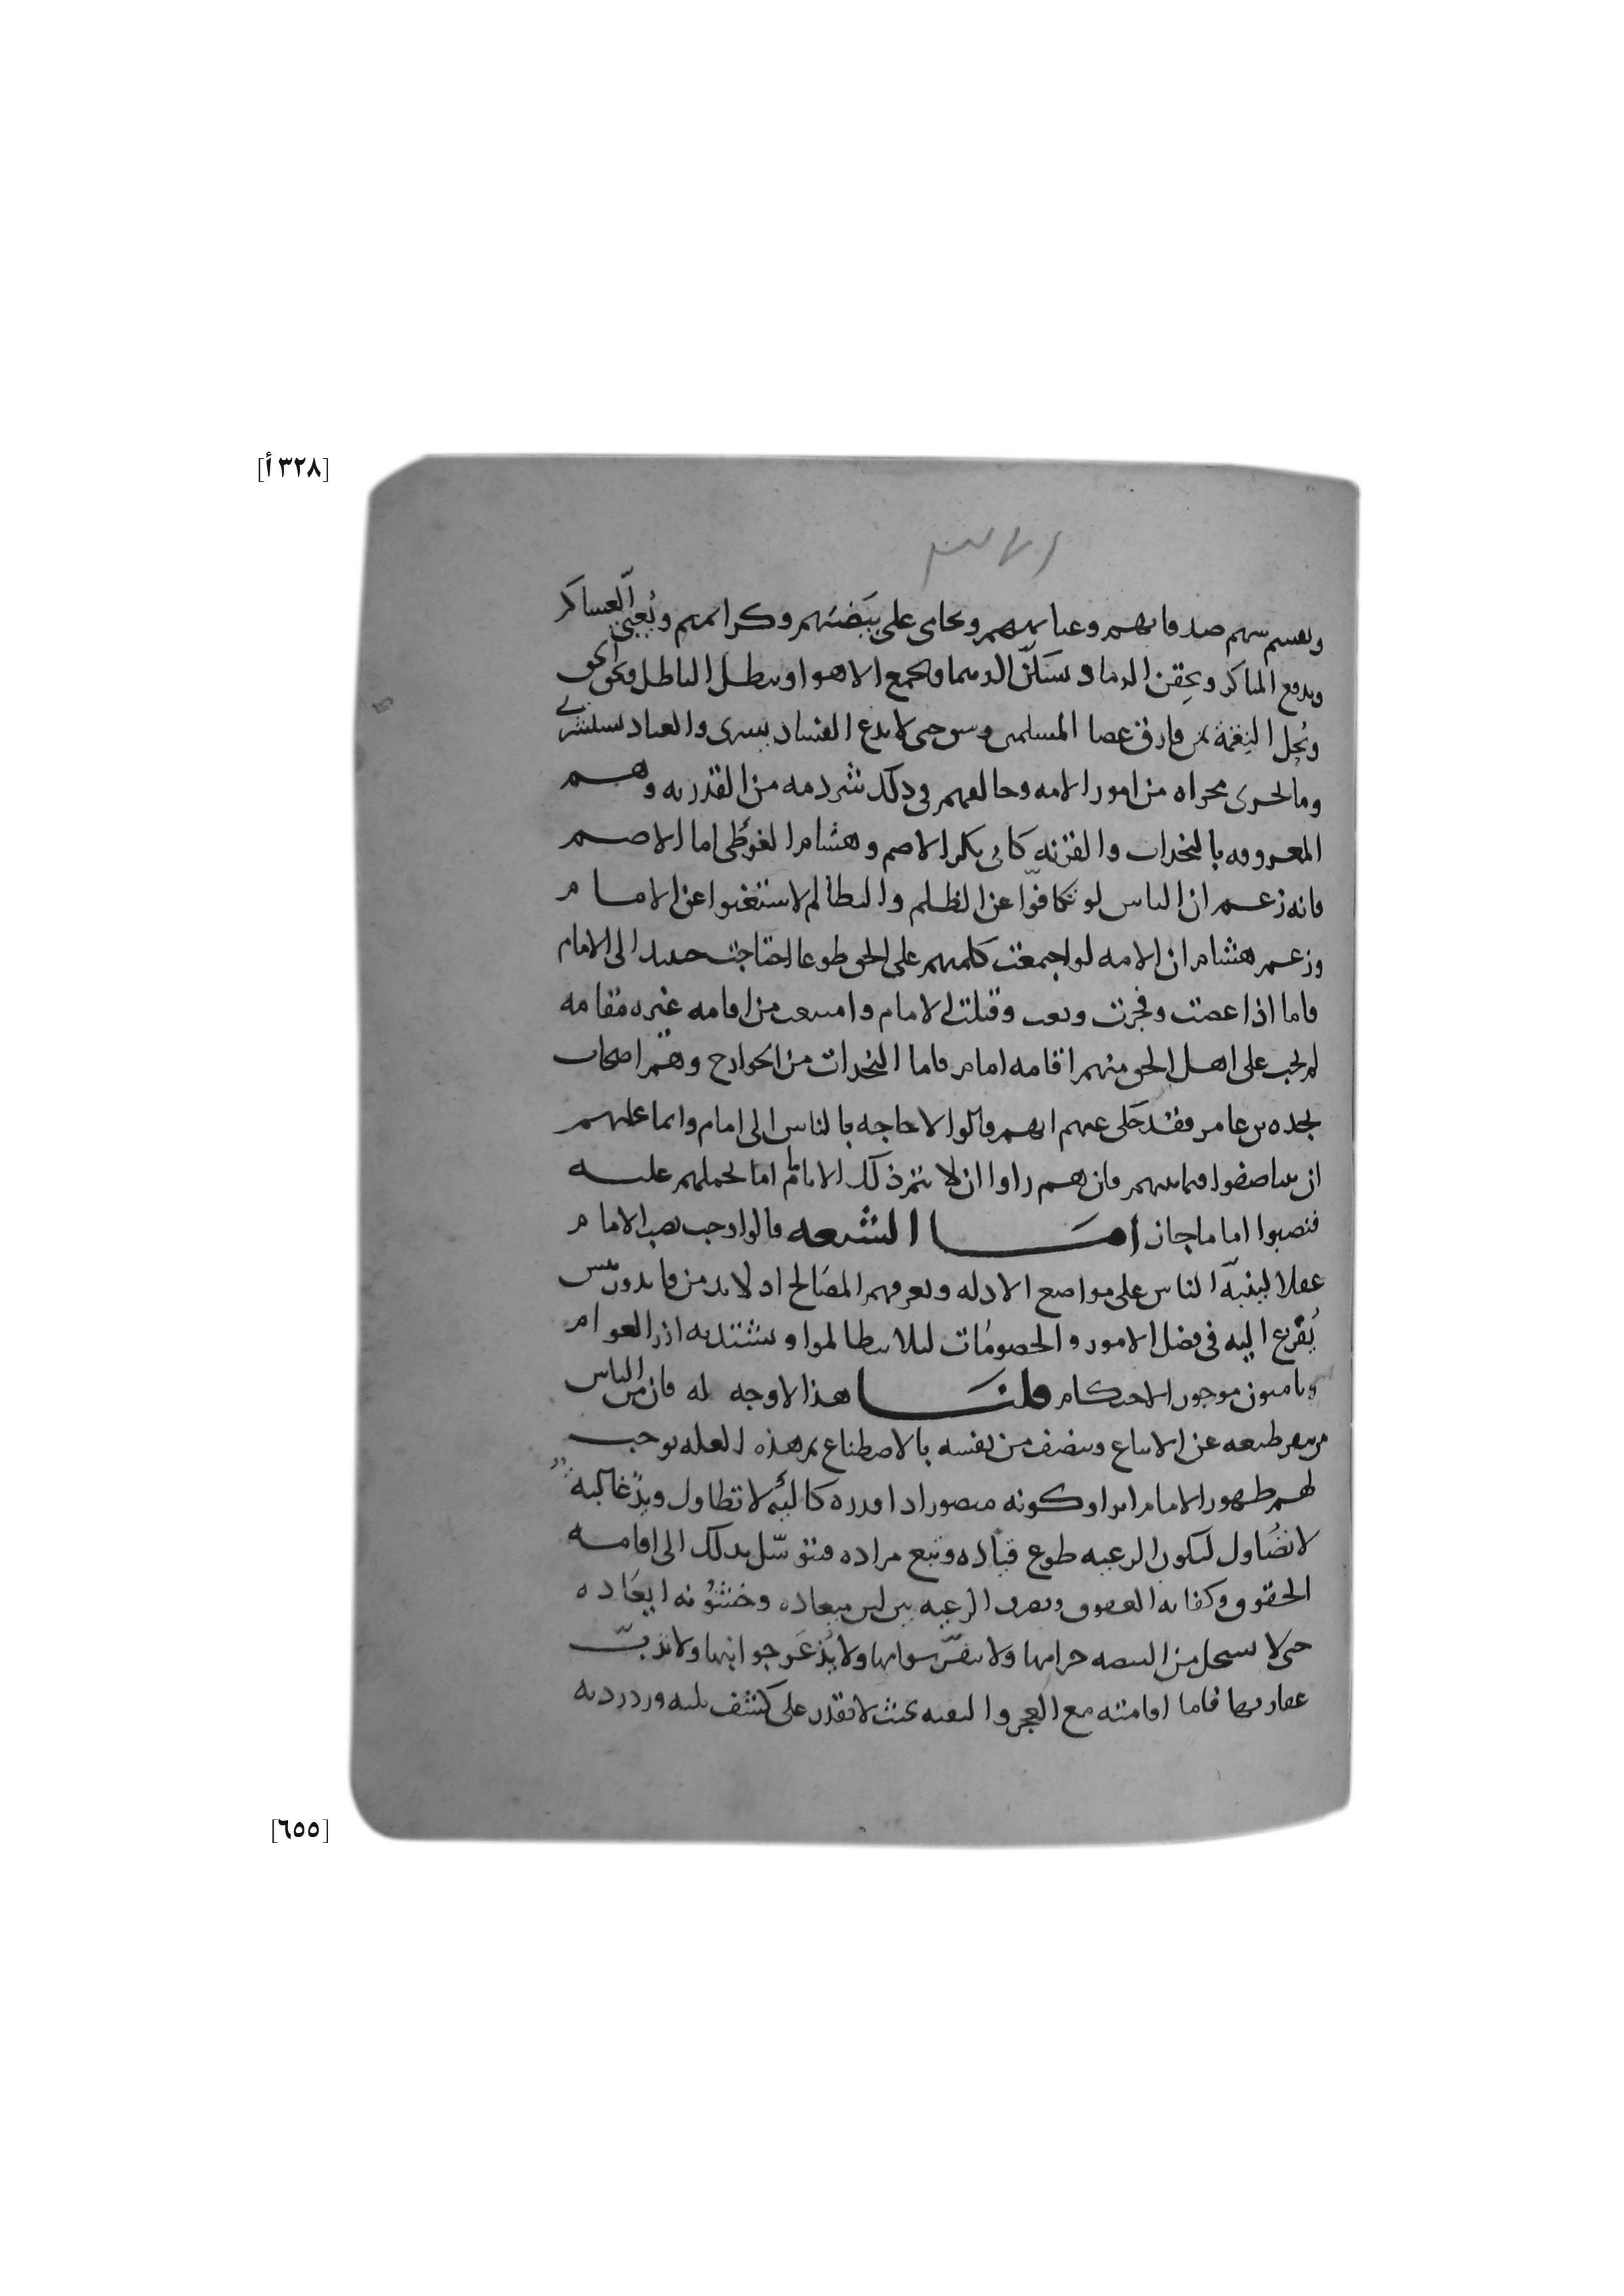 [٣٢٨ أ]
ويقسم بينهم صدقاتهم وغنايمهم ويحامى على بيضتهم وكراىمهم ويُعبّى العساكر
ويدفع المناكر ويحقِن الدما ويسَكّن الدهما ويجمع الاهوا ويبطل الباطل ويحق الحق
ويُحِل النِقمة بمن فارق عصا المسلمين وسوحى لا يدع الفساد يسرى والعناد يستشرى
وما يجرى مجراه من امور الامه وخالفهم فى ذلك شرذمه من القدريه وهم
المعروفه بالنجدات والقدريه كابى بكر الاصم وهشام الفوطى اما الاصم
فانه زعم ان الناس لو تكافوّا عن الظلم والتظالم لاستغنوا عن الامام
وزعم هشام ان الامه لو اجتمعت كلمتهم على الحق طوعا احتاجت حينئذ الى الامام
فاما اذا عصت وفجرت وبغت وقتلت الامام وامتنعت من اقامه غيره مقامه
لم يجب على اهل الحق منهم اقامه امام فاما النجدات من الخوارج وهم اصحاب
نجده بن عامر فقد حكى عنهم انهم قالوا لا حاجه بالناس الى امام وانما عليهم
ان يتناصفوا فيما بينهم فان هم راوا ان لا يتم ذلك الا بامام يحملهم عليه
فنصبوا اماما جاز اما الشيعه قالوا وجب نصب الامام
عقلا لينبّه الناس على مواضع الادله ويعرفهم المصالح اذ لا بد من قايد ورئيس
يُفزع اليه فى فصل الامور والخصومات ليلا يتظالموا ويستند به ازر العوام
ويامنون موجود الاحكام قلنا هذا لا وجه له فان من الناس
من ينفر طبعه عن الاتباع ويتصف من نفسه بالاصطناع ثم هذه العله توجب
لهم ظهور الامام ابدا وكونه منصورا اذا قدره غالبه لا تطاول ويد غالبه
لا تضاول ليكون الرعيه طوع قياده وتبع مراده فيتوسّل بذلك الى اقامه
الحقوق وكفايه العقوق وتصرف الرعيه بين لين ميعاده وخشُونه ايعاده
حتى لا يستحل من البيضه حرامها ولا ينفّر سوامها ولا يُذعَر جوانبها ولا تدبّ
عقاربها فاما اقامته مع العجز والتقيه بحيث لا يقدر على كشف بليه ورد رديه
[٦٥٥]